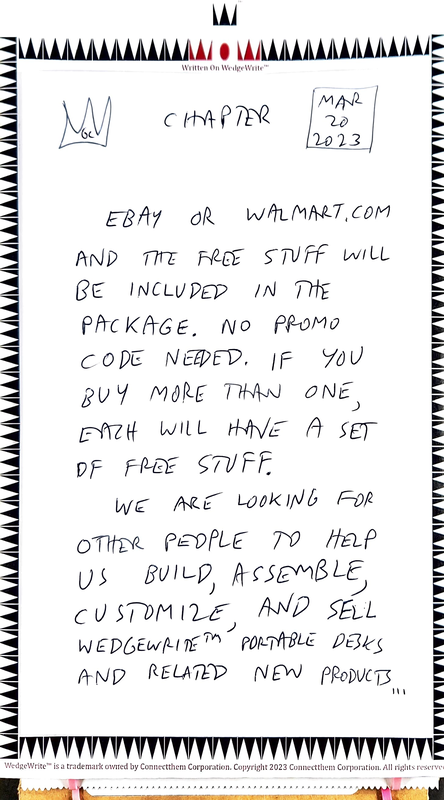 Written On WedgeWrite™
CHAPTER
MAR
20
2023
EBAY OR WALMART.COM
AND THE FREE STUFF WILL
BE INCLUDED IN THE
PACKAGE. NO PROMO
CODE NEEDED. IF YOU
BUY MORE THAN ONE,
EACH WILL HAVE A SET
OF FREE STUFF.
WE ARE LOOKING FOR
OTHER PEOPLE TO HELP
US BUILD, ASSEMBLE,
CUSTOMIZE, AND SELL
WEDGEWRITE™ PORTABLE DESKS
AND RELATED NEW PRODUCTS...
WedgeWrite™ is a trademark owned by Connectthem Corporation. Copyright 2023 Connectthem Corporation. All rights reserve